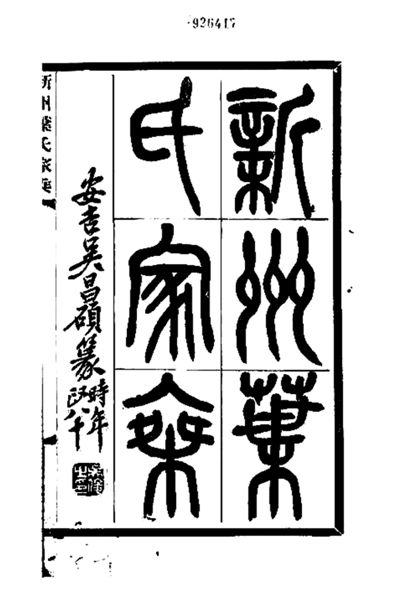 926417
新州葉
氏家乘
安吉吳昌碩篆時年政八十
新州葉氏家乘